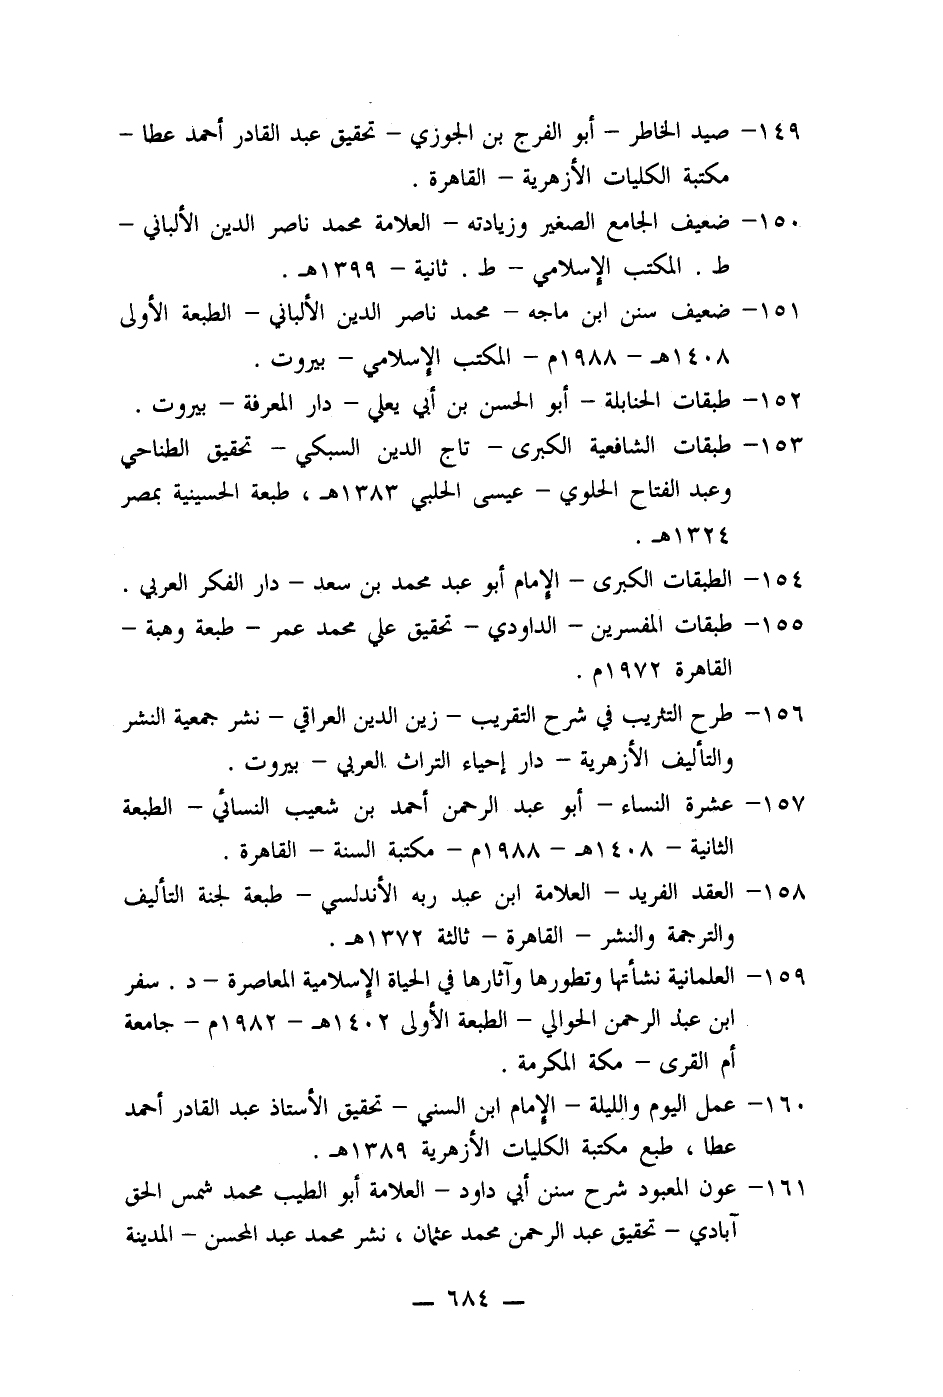 ١٤٩- صيد الخاطر - أبو الفرج بن الجوزي - تحقيق عبد القادر أحمد عطا -
مكتبة الكليات الأزهرية - القاهرة .
١٥٠- ضعيف الجامع الصغير وزيادته - العلامة محمد ناصر الدين الألباني -
ط . المكتب الإسلامي - ط . ثانية - ١٣٩٩هـ .
١٥١- ضعيف سنن ابن ماجه - محمد ناصر الدين الألباني - الطبعة الأولى
١٤٠٨هـ - ١٩٨٨م - المكتب الإسلامي - بيروت .
١٥٢- طبقات الحنابلة - أبو الحسن بن أبي يعلي - دار المعرفة - بيروت .
١٥٣- طبقات الشافعية الكبرى - تاج الدين السبكي - تحقيق الطناحي
وعبد الفتاح الحلوي - عيسى الحلبي ١٣٨٣هـ ، طبعة الحسينية بمصر
١٣٢٤هـ .
١٥٤- الطبقات الكبرى - الإمام أبو عبد محمد بن سعد - دار الفكر العربي .
١٥٥- طبقات المفسرين - الداودي - تحقيق علي محمد عمر - طبعة وهبة -
القاهرة ١٩٧٢م .
١٥٦- طرح التثريب في شرح التقريب - زين الدين العراقي - نشر جمعية النشر
والتأليف الأزهرية - دار إحياء التراث العربي - بيروت .
١٥٧- عشرة النساء - أبو عبد الرحمن أحمد بن شعيب النسائي - الطبعة
الثانية - ١٤٠٨هـ - ١٩٨٨م - مكتبة السنة - القاهرة .
١٥٨- العقد الفريد - العلامة ابن عبد ربه الأندلسي - طبعة لجنة التأليف
والترجمة والنشر - القاهرة - ثالثة ١٣٧٢هـ .
١٥٩- العلمانية نشأتها وتطورها وآثارها في الحياة الإسلامية المعاصرة - د . سفر
ابن عبد الرحمن الحوالي - الطبعة الأولى ١٤٠٢هـ - ١٩٨٢م - جامعة
أم القرى - مكة المكرمة .
١٦٠- عمل اليوم والليلة - الإمام ابن السني - تحقيق الأستاذ عبد القادر أحمد
عطا ، طبع مكتبة الكليات الأزهرية ١٣٨٩هـ .
١٦١- عون المعبود شرح سنن أبي داود - العلامة أبو الطيب محمد شمس الحق
آبادي - تحقيق عبد الرحمن محمد عثمان ، نشر محمد عبد المحسن - المدينة
— ٦٨٤ —